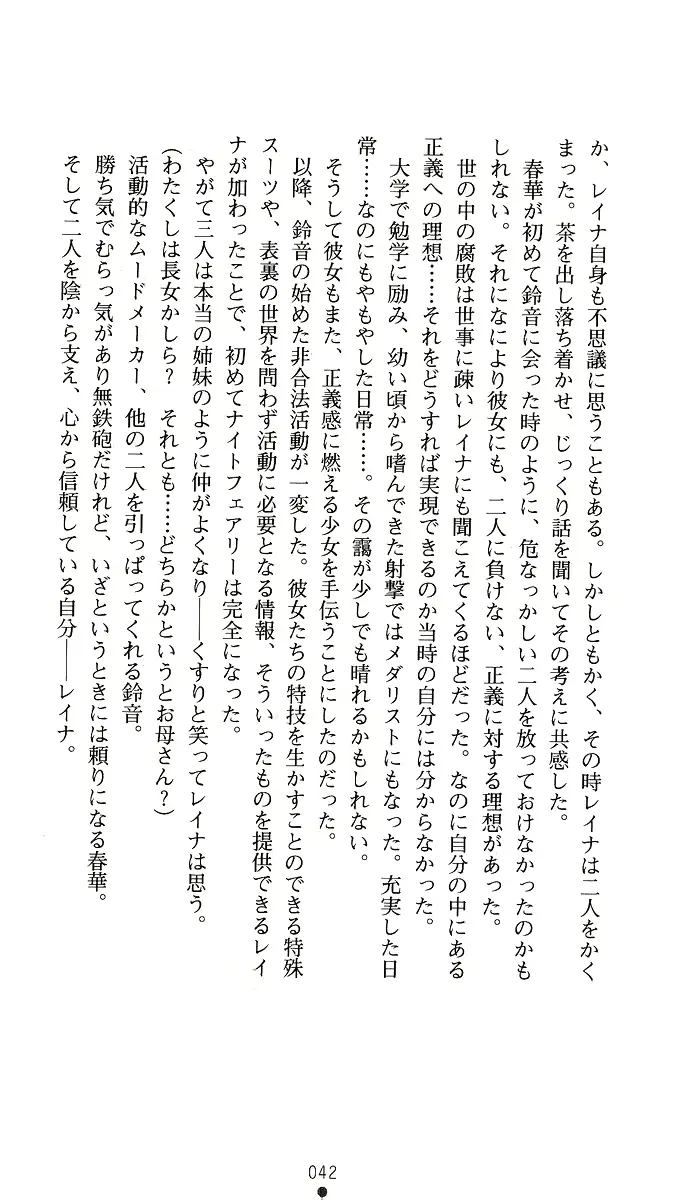 か、レイナ自身も不思議に思うこともある。しかしともかく、その時レイナは二人をかく
まった。茶を出し落ち着かせ、じっくり話を聞いてその考えに共感した。
春華が初めて鈴音に会った時のように、危なっかしい二人を放っておけなかったのかも
しれない。それになにより彼女にも、二人に負けない、正義に対する理想があった。
世の中の腐敗は世事に疎いレイナにも聞こえてくるほどだった。なのに自分の中にある
正義への理想……それをどうすれば実現できるのか当時の自分には分からなかった。
大学で勉学に励み、幼い頃から嗜んできた射撃ではメダリストにもなった。充実した日
常……なのにもやもやした日常……。その靄が少しでも晴れるかもしれない。
そうして彼女もまた、正義感に燃える少女を手伝うことにしたのだった。
以降、鈴音の始めた非合法活動が一変した。彼女たちの特技を生かすことのできる特殊
スーツや、表裏の世界を問わず活動に必要となる情報、そういったものを提供できるレイ
ナが加わったことで、初めてナイトフェアリーは完全になった。
やがて三人は本当の姉妹のように仲がよくなり――くすりと笑ってレイナは思う。
(わたくしは長女かしら？　それとも……どちらかというとお母さん？)
活動的なムードメーカー、他の二人を引っぱってくれる鈴音。
勝ち気でむらっ気があり無鉄砲だけれど、いざというときには頼りになる春華。
そして二人を陰から支え、心から信頼している自分――レイナ。
042